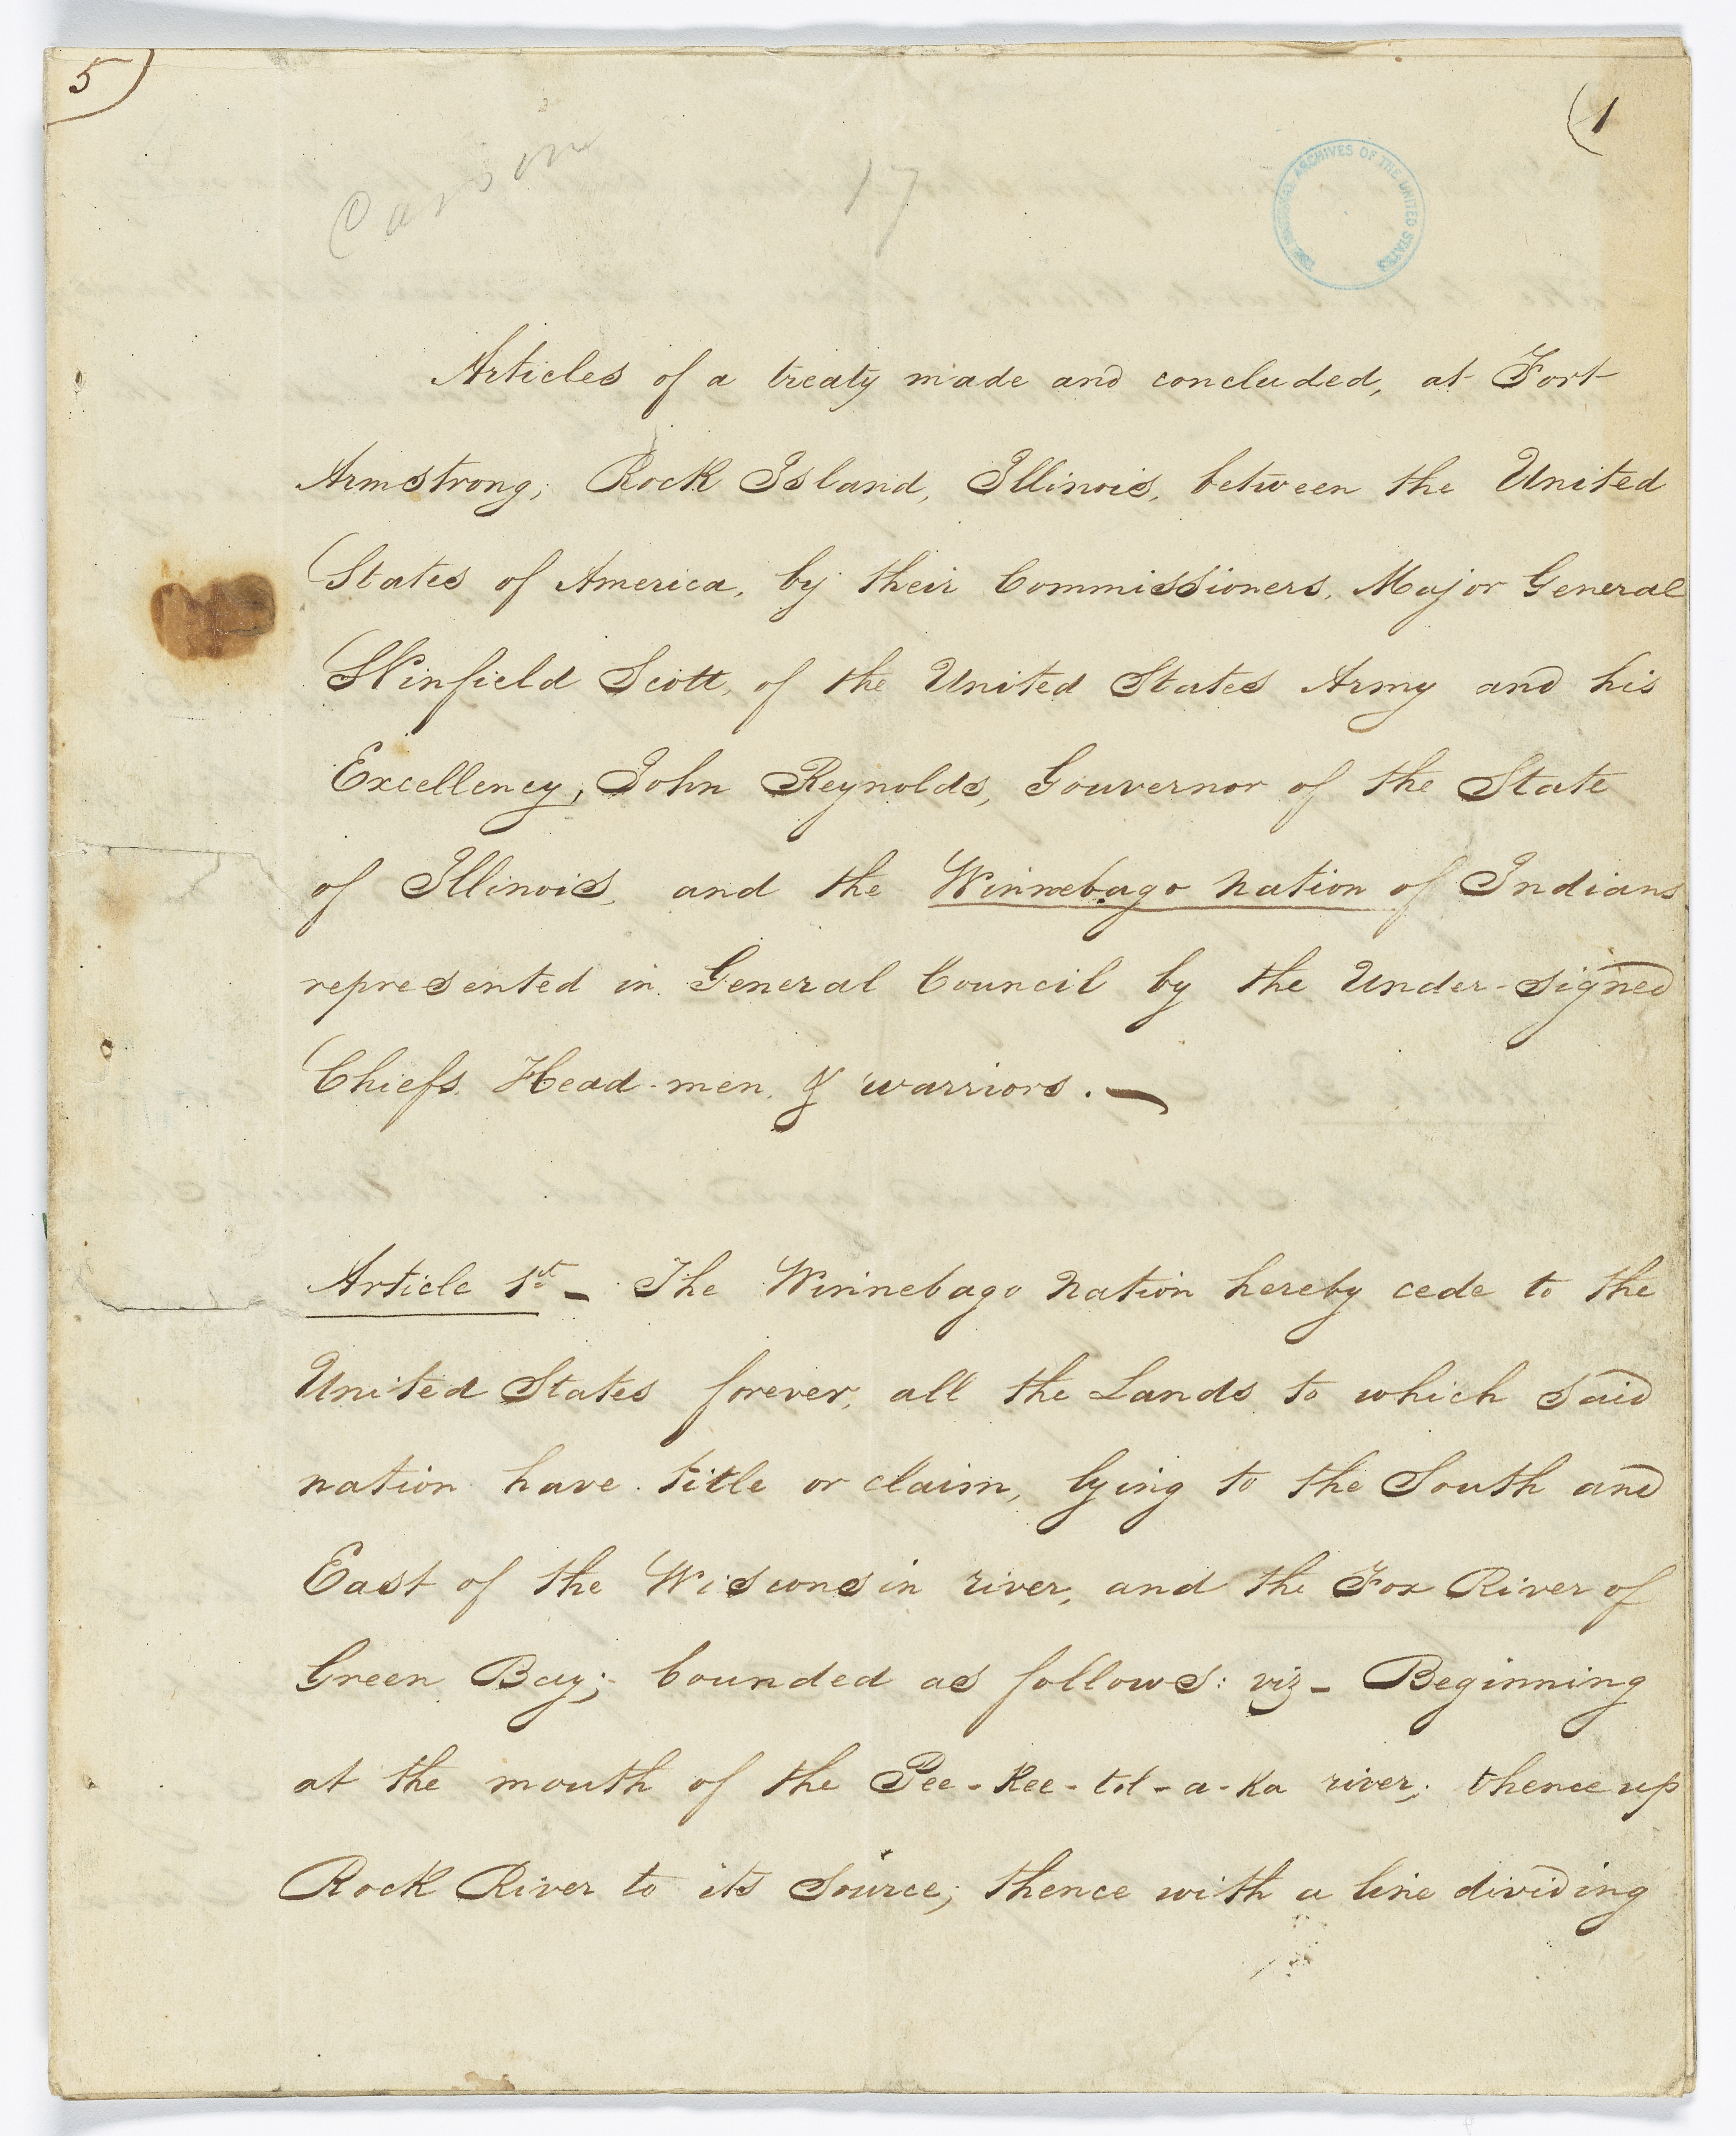 5)
(1
Carson
17
THE NATIONAL ARCHIVES OF THE UNITED STATES
Articles of a treaty made and concluded, at Fort
Armstrong, Rock Island, Illinois, between the United
States of America, by their Commissioners, Major General
Winfield Scott, of the United States Army and his
Excellency, John Reynolds, Gouvernor of the State
of Illinois, and the Winnebago nation of Indians
represented in General Council by the Under-signed
Chiefs, Head-men, & warriors. —
Article 1st – The Winnebago nation hereby cede to the
United States forever, all the Lands to which said
nation have title or claim, lying to the South and
East of the Wisconsin river, and the Fox River of
Green Bay; bounded as follows: viz – Beginning
at the mouth of the Pee-Kee-tol-a-Ka river; thence up
Rock River to its source; thence with a line dividing